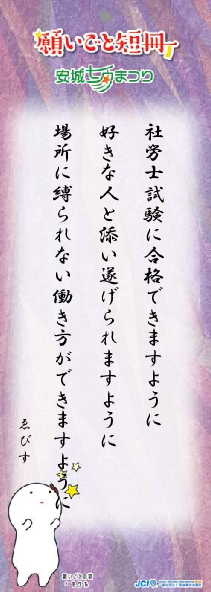 願いごと短冊
安城七夕まつり
社労士試験に合格できますように
好きな人と添い遂げられますように
場所に縛られない働き方ができますように
ゑびす
JCI